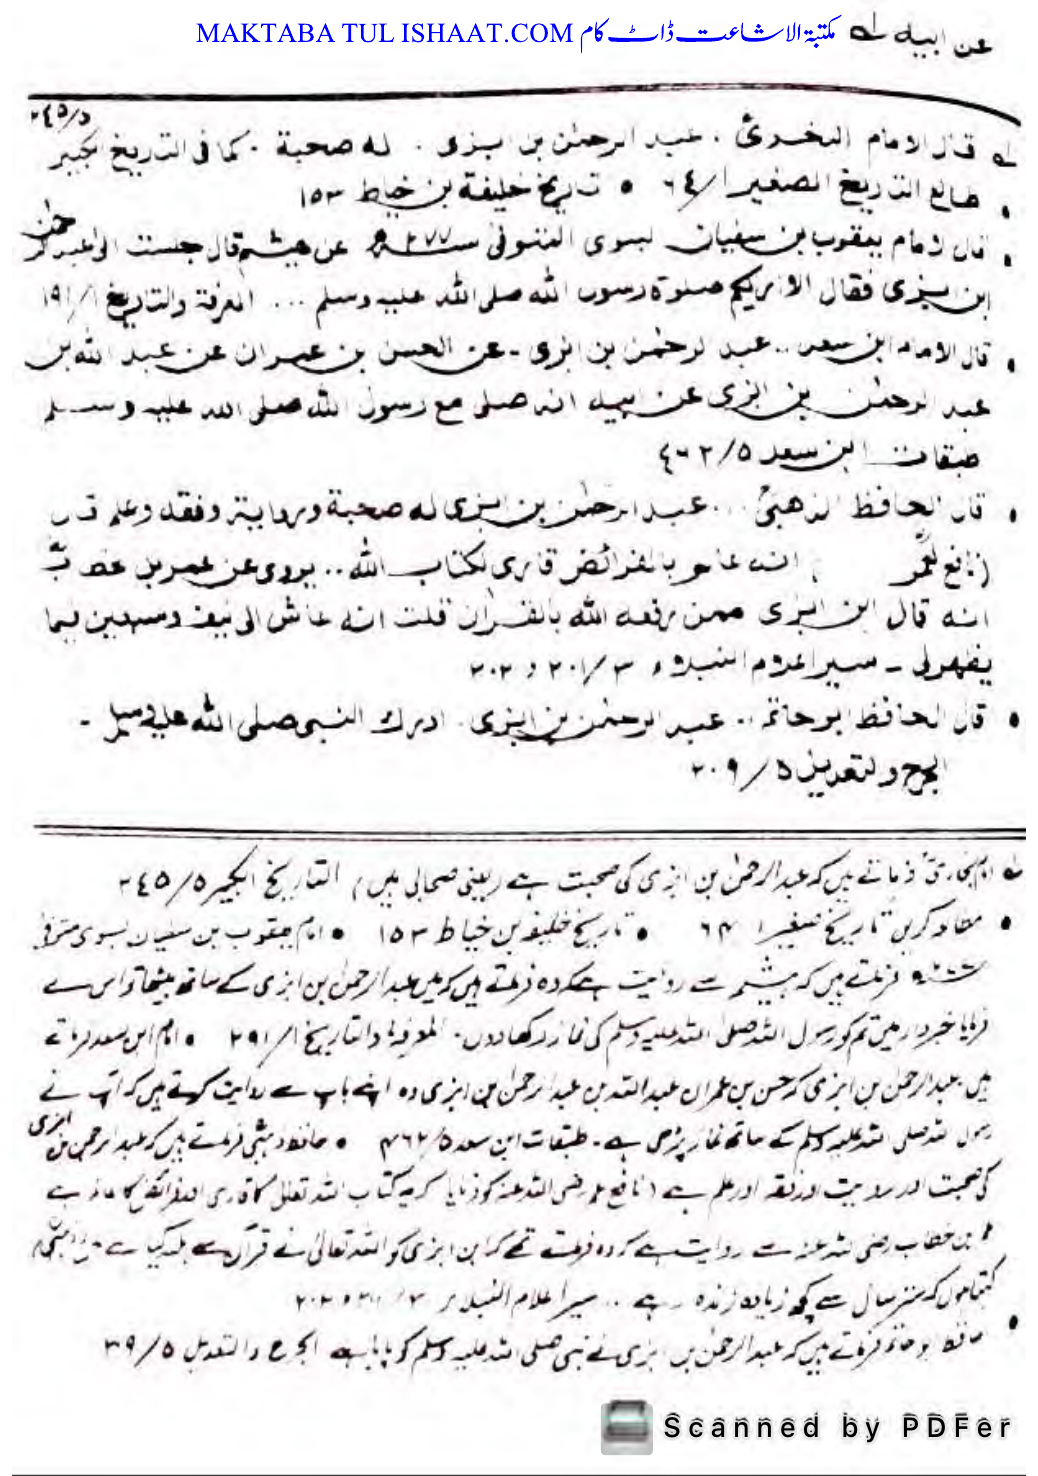 MAKTABA TUL ISHAAT.COM مکتبۃ الاشاعت ڈاٹ کام
عن ابیہ لہ
٢٤٥/٥
لہ قال الامام البخاریؒ . عبد الرحمٰن بن ابزی . له صحبة . كما فی التاريخ الكبير
• طالع التاريخ الصغير ١/٦٤ • تاريخ خليفة بن خياط ١٥٣
• قال الامام يعقوب بن سفيان بسوی المتوفى سنة ٢٧٧ھ عن هيثم قال جلست الى عبد الرحمٰن
ابن ابزى فقال الا اريكم صلوة رسول الله صلى الله عليه وسلم ... المعرفة والتاريخ ٢٩١/١
• قال الامام ابن سعد .. عبد الرحمٰن بن ابزى - عن الحسن بن عمران عن عبد الله بن
عبد الرحمٰن بن ابزى عن ابيه انه صلى مع رسول الله صلى الله عليه وسلم
طبقات ابن سعد ٤٦٢/٥
• قال الحافظ الذهبیؒ ... عبد الرحمٰن بن ابزى له صحبة ورواية وفقه وعلم قال
(نافع لعمر انه عالم بالفرائض قارى لكتاب الله .. يروى عن عمر بن خطابؓ
انه قال ابن ابزى ممن رفعه الله بالقرآن قلت انه عاش الى نيف وسبعين فيما
يظهر لی - سير اعلام النبلاء ٢٠١/٣ و ٢٠٢
• قال الحافظ ابو حاتم .. عبد الرحمٰن بن ابزى . ادرك النبی صلى الله عليه وسلم -
الجرح والتعديل ٢٠٩/٥
لہ امام بخاریؒ فرماتے ہیں کہ عبدالرحمٰن بن ابزی کی صحبت ہے (یعنی صحابی ہیں) التاریخ الکبیر ٢٤٥/٥
• مطالعہ کریں تاریخ صغیر ١/٦٤ • تاریخ خلیفہ بن خیاط ١٥٣ • امام یعقوب بن سفیان بسوی متوفی
٢٧٧ھ فرماتے ہیں کہ ہیثم سے روایت ہے کہ وہ فرماتے ہیں کہ میں عبدالرحمٰن بن ابزی کے ساتھ بیٹھا تو اس نے
فرمایا خبردار میں تم کو رسول اللہ صلی اللہ علیہ وسلم کی نماز دکھا دوں . المعرفۃ والتاریخ ٢٩١/١ • امام ابن سعد فرماتے
ہیں عبدالرحمٰن بن ابزی کہ حسن بن عمران عبداللہ بن عبدالرحمٰن بن ابزی وہ اپنے باپ سے روایت کرتے ہیں کہ آپ نے
رسول اللہ صلی اللہ علیہ وسلم کے ساتھ نماز پڑھی ہے - طبقات ابن سعد ٤٦٢/٥ • حافظ ذہبی فرماتے ہیں کہ عبدالرحمٰن بن ابزی
کی صحبت اور روایت اور فقہ اور علم ہے (نافع عمر رضی اللہ عنہ کو فرمایا کہ یہ کتاب اللہ تعالیٰ کا قاری اور فرائض کا عالم ہے
عمر بن خطاب رضی اللہ عنہ سے روایت ہے کہ وہ فرماتے تھے کہ ابن ابزی کو اللہ تعالیٰ نے قرآن سے بلند کیا ہے میں (ذہبی)
کہتا ہوں کہ ستر سال سے کچھ زیادہ زندہ رہے .. سیر اعلام النبلاء ٢٠١/٣ و ٢٠٢
• حافظ ابو حاتم فرماتے ہیں کہ عبدالرحمٰن بن ابزی نے نبی صلی اللہ علیہ وسلم کو پایا ہے الجرح والتعدیل ٢٠٩/٥
Scanned by PDFer